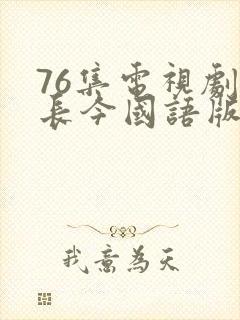 76集電視劇
長今國語版
我意為天